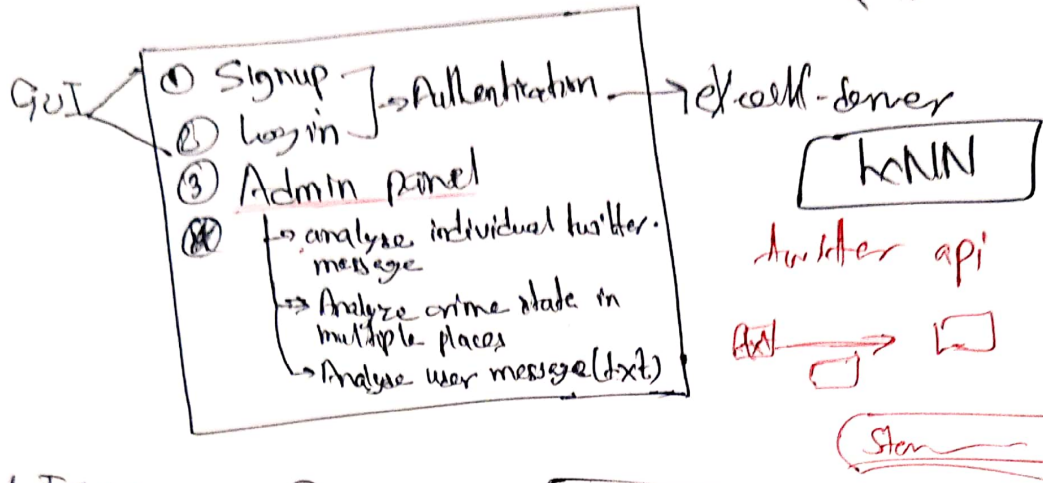 GUI
① Signup
→ Authentication → 
② Login
③ Admin panel
↳ analyse individual twitter.
message
→ Analyze crime state in
multiple places
↳ Analyse user message (txt)
twitter api
txt